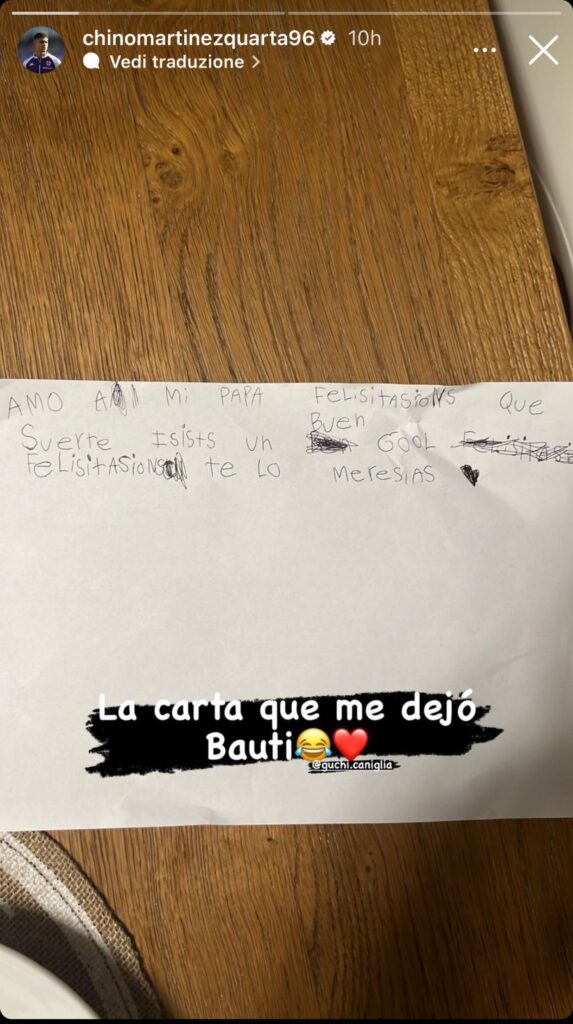 chinomartinezquarta96 10h
Vedi traduzione >
AMO A mi PAPA FeLisitAsioNs Que
Buen
Suerte Isists un GOOL
FeLisitAsions te Lo Meresias
La carta que me dejó
Bauti😂❤️
@guchi.caniglia